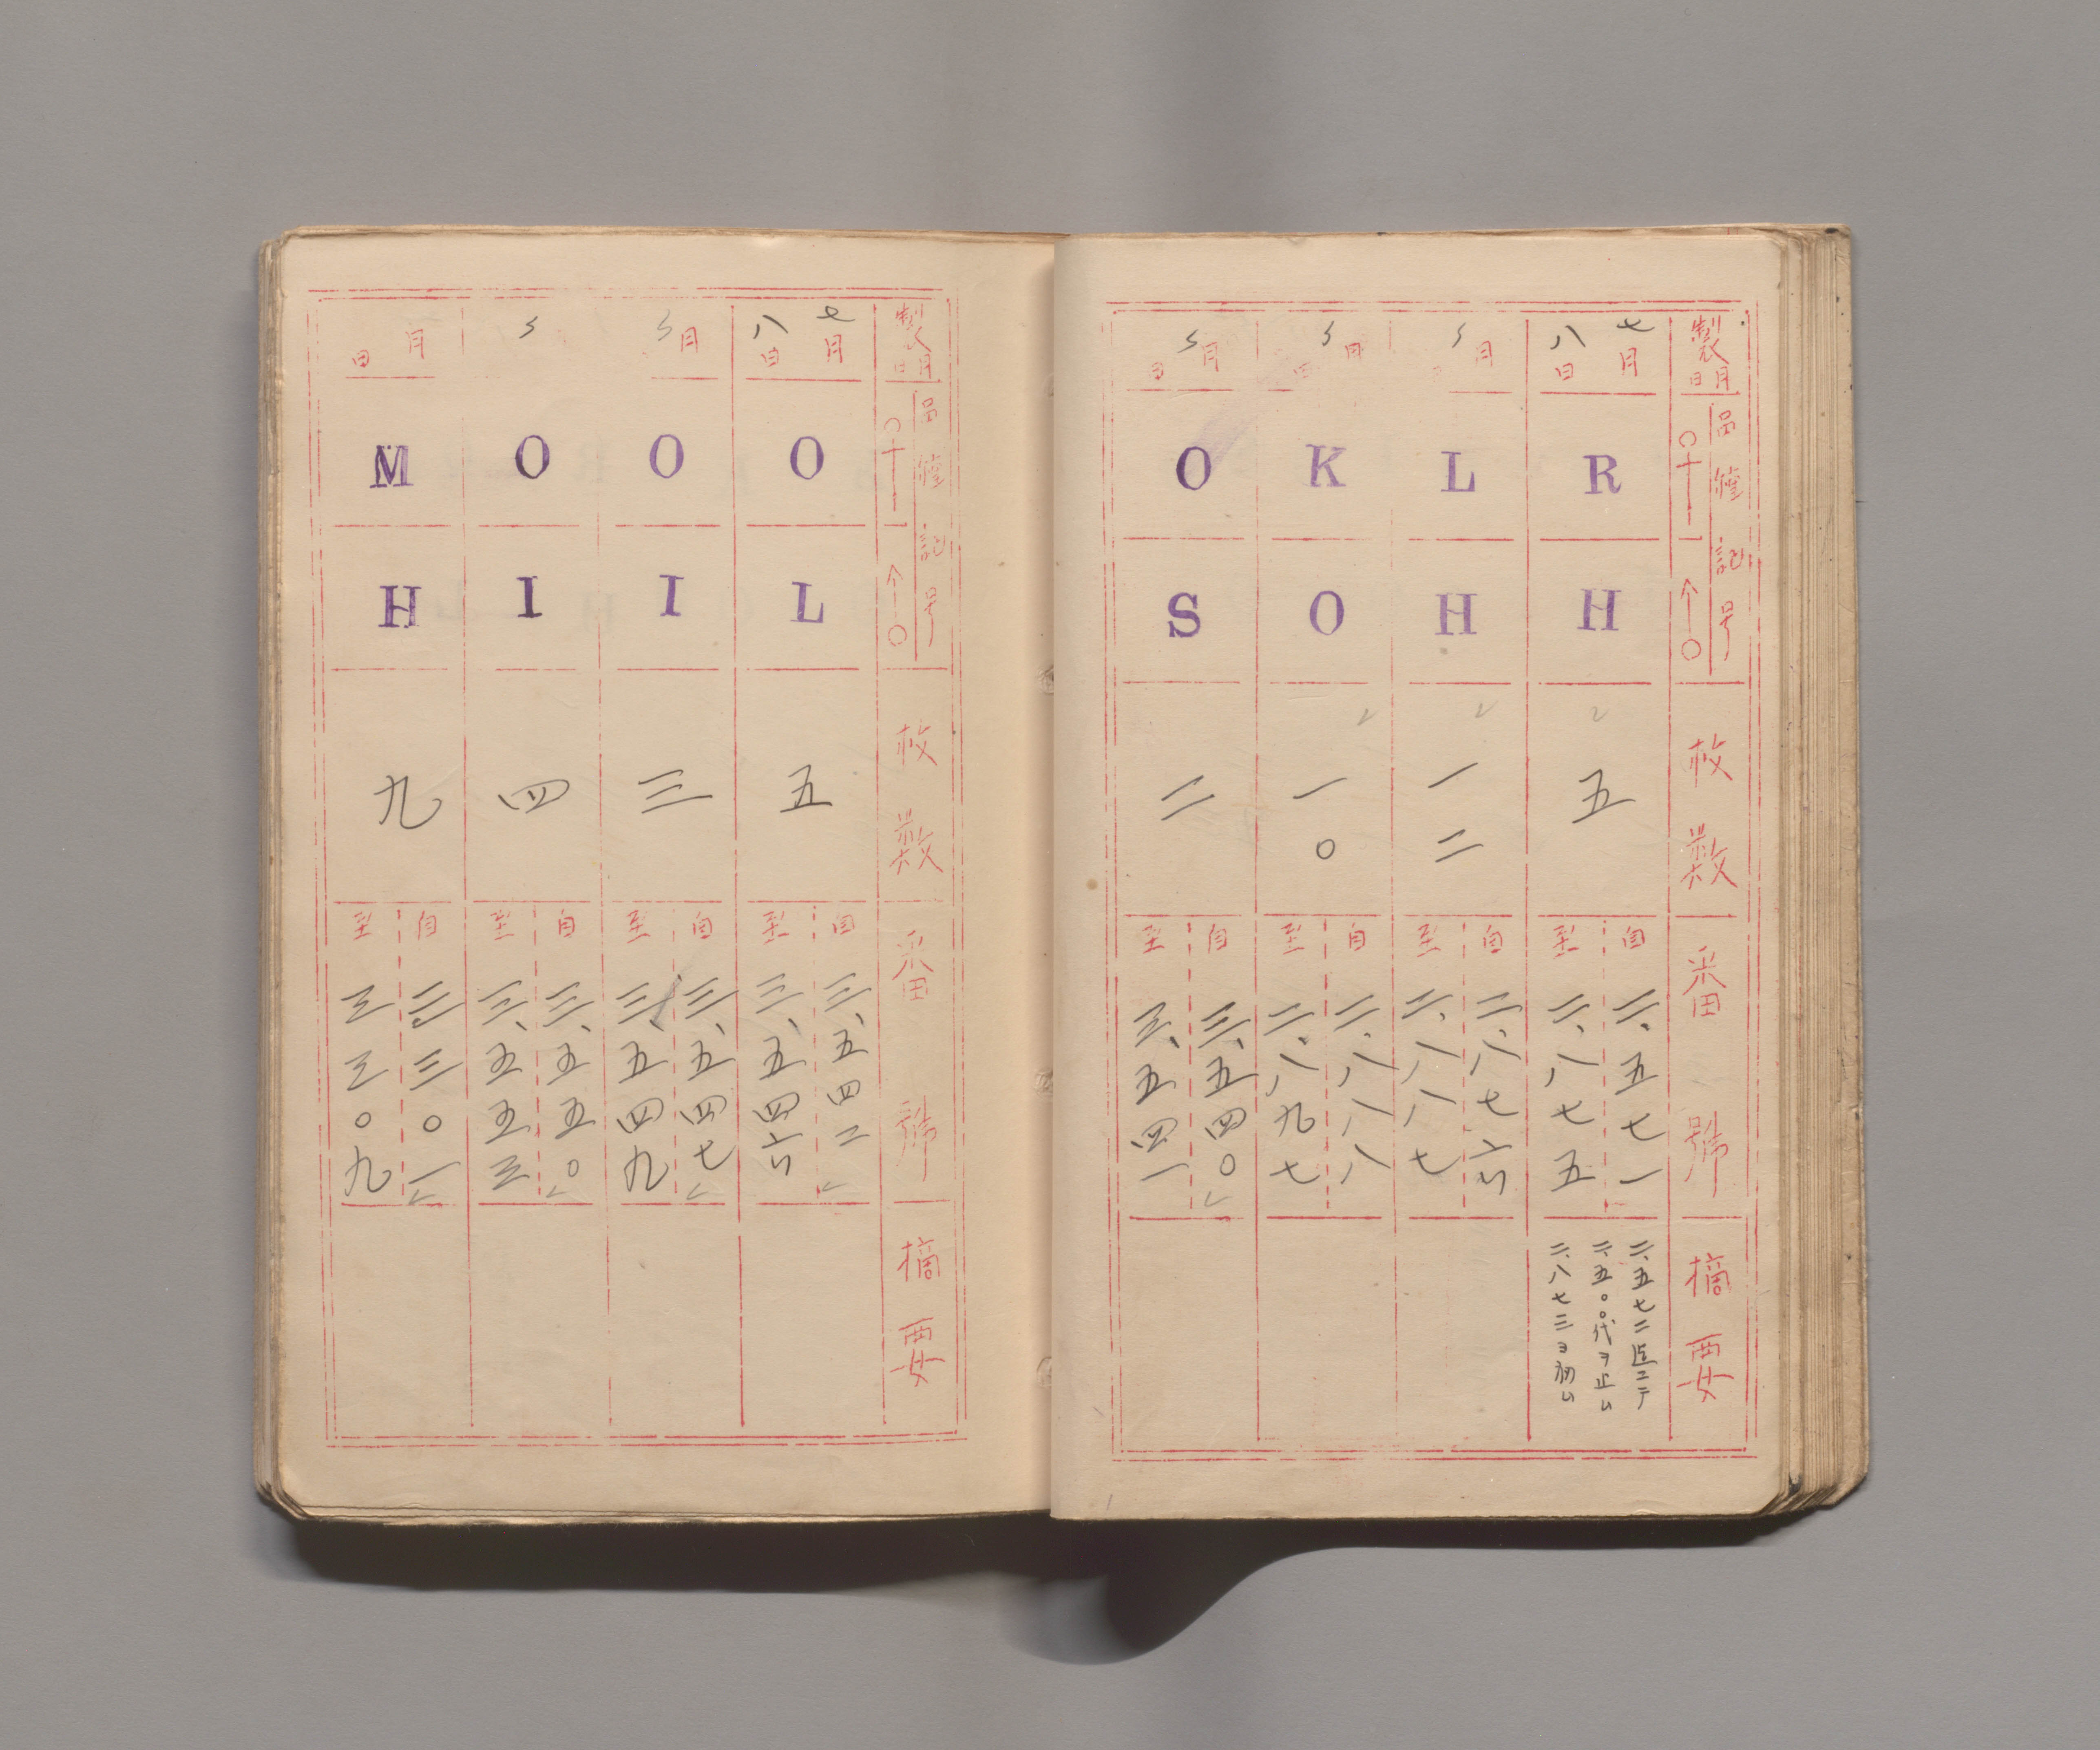 製月日
品種記号
枚数
番號
摘要
七月
八日
R
H
五
自 二、五七一
至 二、八七五
二、五七二迄ニテ
二、五〇〇代ヲ止ム
二、八七三ヨ初ム
〃月
L
H
一二
自 二、八七六
至 二、八八七
〃月
日
K
O
一〇
自 二、八八八
至 二、八九七
〃月
日
O
S
二
自 三、五四〇
至 三、五四一
製月日
品種記号
枚数
番號
摘要
七月
八日
O
L
五
自 三、五四二
至 三、五四六
〃月
O
I
三
自 三、五四七
至 三、五四九
〃
O
I
四
自 三、五五〇
至 三、五五三
月
日
M
H
九
自 三三〇一
至 三三〇九